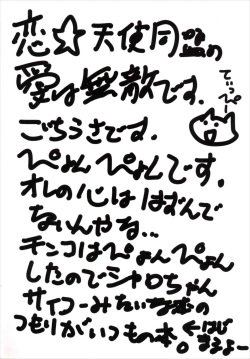 恋☆天使同盟の
愛は無敵です。
てぃっぴー
ごちうさです.
ぴょんぴょんです。
オレの心ははずんで
ないんやな...
チンコはぴょんぴょん
したのでシャロちゃん
サイコーみたいな感じの
つもりがいつもの本。←はじ
まるよー